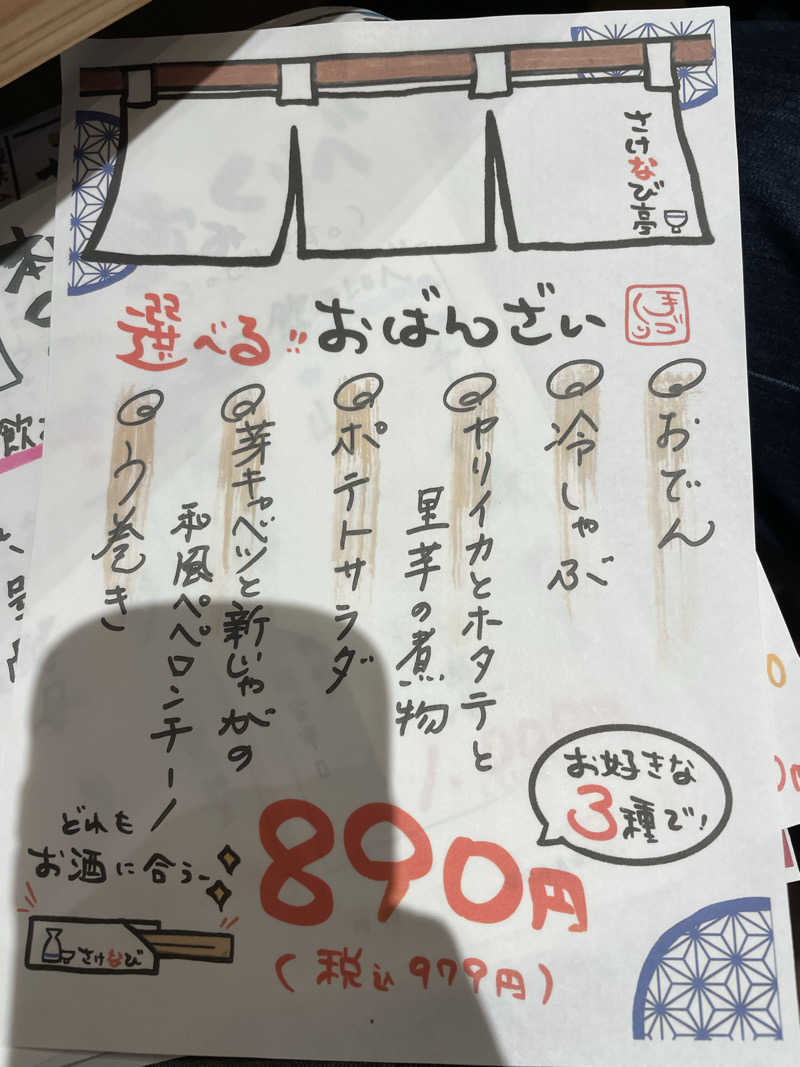 さけなび亭
選べる!! おばんざい
手づくり
おでん
冷しゃぶ
ヤリイカとホタテと
里芋の煮物
ポテトサラダ
芽キャベツと新じゃがの
和風ペペロンチーノ
う巻き
お好きな
3種で!
どれも
お酒に合うー
890円
(税込979円)
さけなび
飲